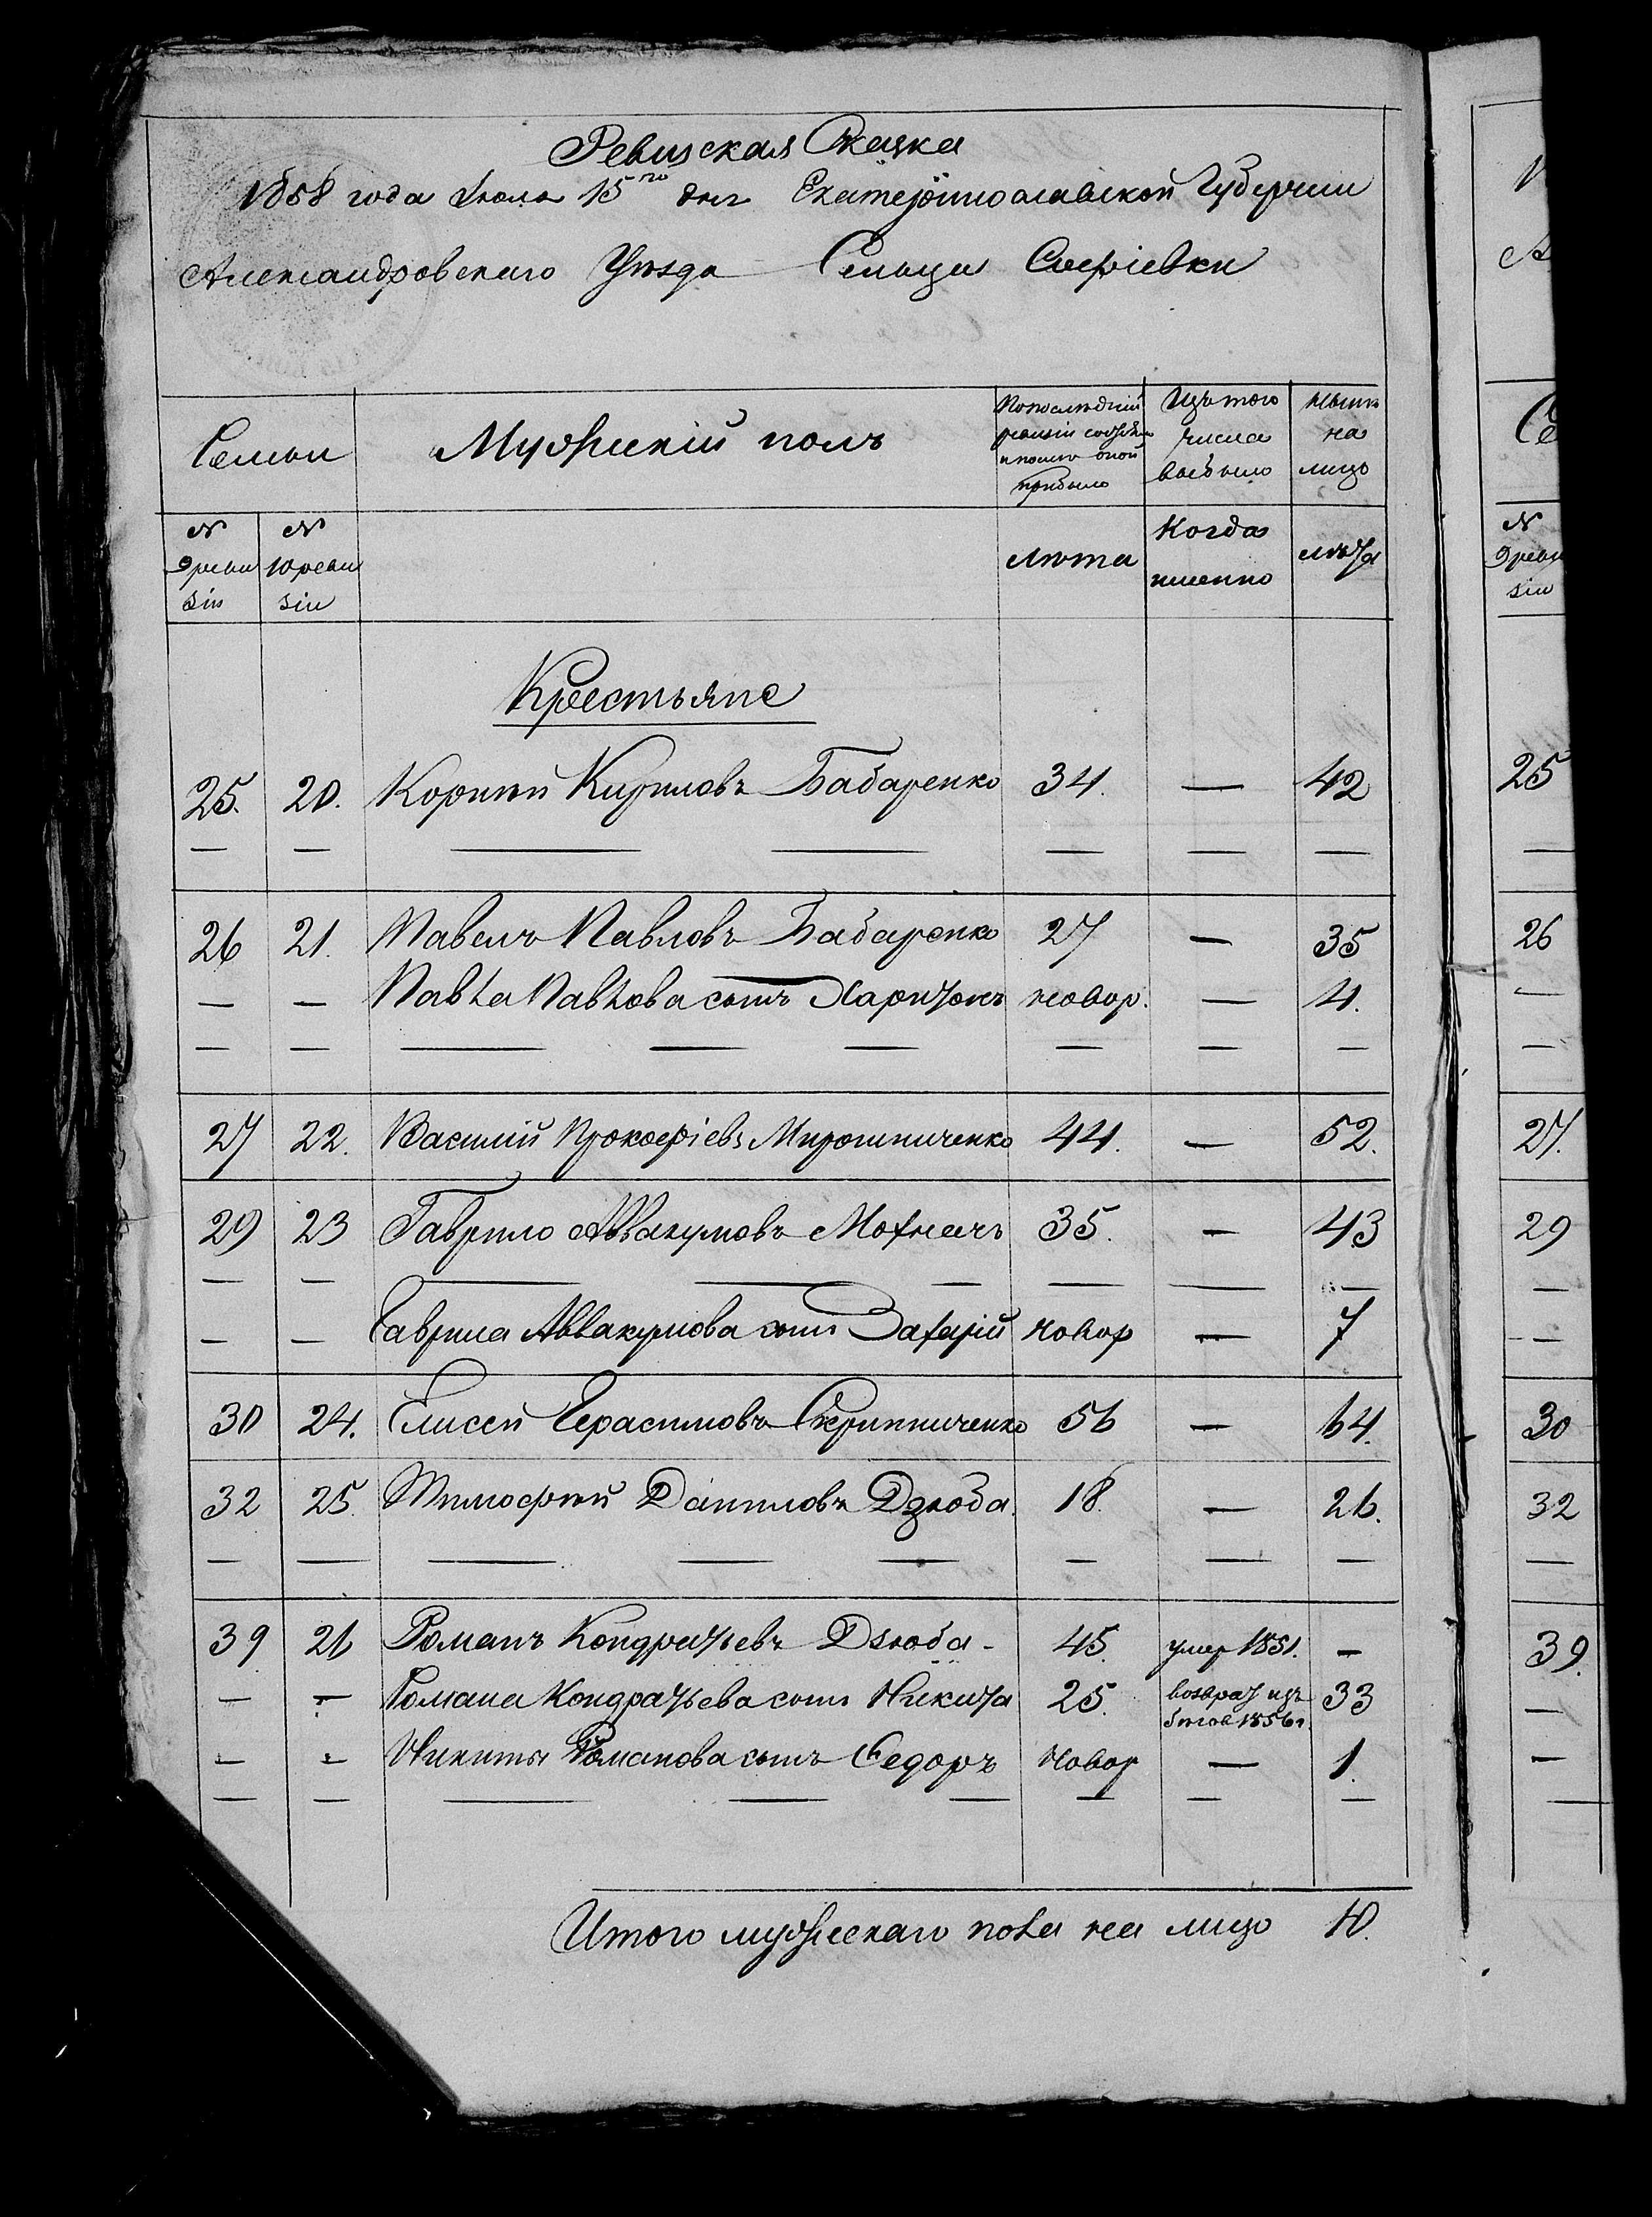 Ревизская Сказка
1858 года Июля 15го дня Екатеринославской Губернии
Александровскаго Уѣзда Сельца Софіевки
Семьи
Мужескій полъ
По последній ревизіи состояло и после оной прибыло
Изъ того числа выбыло
Нынѣ на лицо
N 9 ревизіи
N 10 ревизіи
Лѣта
Когда именно
лѣта
Крестьяне
25. 20. Корнѣй Кириловъ Бабаренко 34. — 42
— — — — — — —
26 21. Павелъ Павловъ Бабаренко 27 — 35
— — Павла Павлова сынъ Харитонъ новор. — 4.
— — — — — — — —
27 22. Василій Прокофіевъ Мирошниченко 44. — 52.
29 23 Гаврило Аввакумовъ Мохначъ 35. — 43
— — — — — — — —
— — Гаврила Аввакумова сынъ Захарій новор — 7
30 24. Елисей Герасимовъ Скрипниченко 56 — 64.
32 25. Тимофѣй Даниловъ Дзюба. 18. — 26.
— — — — — — — —
39 26 Романъ Кондратьевъ Дзюба - 45. умер 1851. —
— — Романа Кондратьева сынъ Никита 25. возврат изъ бѣгов 1856 г. 33
— — Никиты Романова сынъ Федоръ новор — 1.
— — — — — — — —
Итого мужескаго пола на лицо 10.
N
9 реви
зіи
25
—
26
—
—
27.
29
—
— —
30
32
—
39.
—
—
—